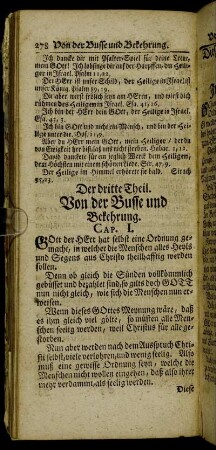 278 Von der Busse und Bekehrung.
Ich dancke dir mit Psalter-Spiel für deine Treue,
mein GOtt! Ich lobsinge dir auf der Harpffen, du Heili-
ger in Israel. Psalm 71,22.
Der HErr ist unser Schild, der Heilige in Israel ist
unser König. Psalm 89,19.
Du aber wirst frölich seyn am HErrn, und wirst dich
rühmen des Heiligen in Israel. Es. 41, 16.
Ich bin der HErr dein GOtt, der Heilige in Israel.
Es. 43, 3.
Ich bin GOtt und nicht ein Mensch, und bin der Hei-
lige unter dir. Hos. 11,9.
Aber du HErr mein GOtt, mein Heiliger / der du
von Ewigkeit her bist, laß uns nicht sterben. Habac. 1,12.
David danckete für ein jeglich Werck dem Heiligen,
dem Höchsten mit einem schönen Liede. Sir. 47,9.
Der Heilige im Himmel erhörete sie bald. Sirach
Der dritte Theil.
Von der Busse und
Bekehrung.
CAP. I.
GOtt der HErr hat selbst eine Ordnung ge-
macht, in welcher die Menschen alles Heyls
und Segens aus Christo theilhafftig werden
sollen.
Denn ob gleich die Sünden vollkömmlich
gebüsset und bezahlet sind, so gilts doch GOTT
nun nicht gleich, wie sich die Menschen nun er-
weisen.
Wenn dieses GOttes Meynung wäre, daß
es ihm gleich viel gölte, so müsten alle Men-
schen seelig werden, weil Christus für alle ge-
storben.
Nun aber werden nach dem Ausspruch Chri-
sti selbst, viele verlohren, und wenig seelig. Also
muß eine Ordnung seyn, welche die
Menschen nicht wollen eingehen, daß also ihrer
mehr verdammt, als seelig werden.
Diese